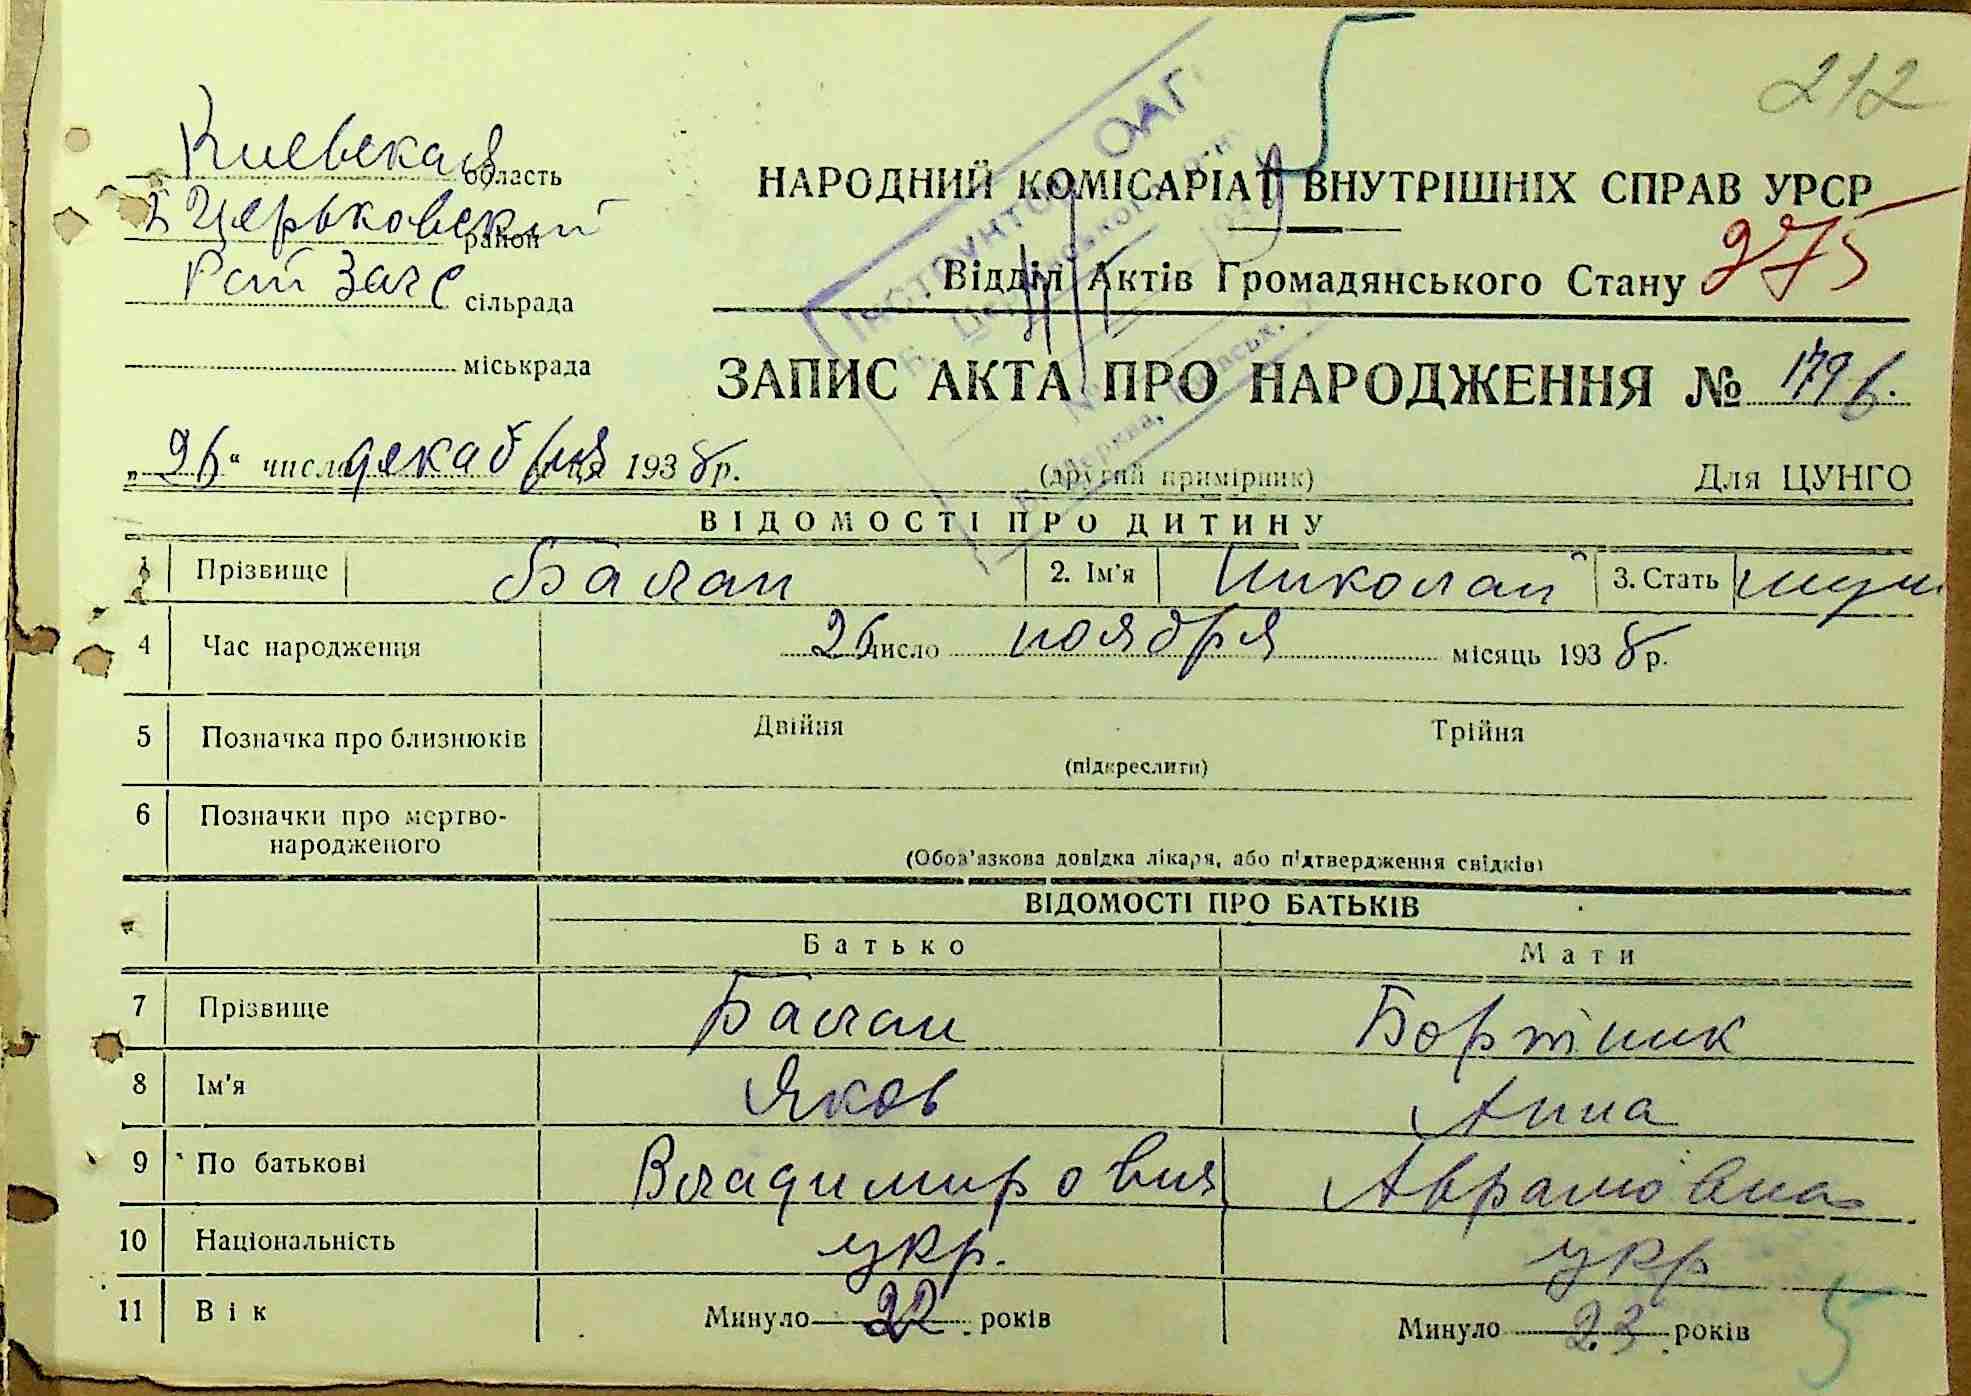 212
Киевская область
Б Церьковский район
Рай Загс сільрада
міськрада
НАРОДНИЙ КОМІСАРІАТ ВНУТРІШНІХ СПРАВ УРСР
Відділ Актів Громадянського Стану 275
ЗАПИС АКТА ПРО НАРОДЖЕННЯ № 1796.
„26“ числа декабря 1938 р.
(другий примірник)
Для ЦУНГО
ВІДОМОСТІ ПРО ДИТИНУ
1 Прізвище Балан 2. Ім'я Николай 3. Стать муж
4 Час народження 26 число ноября місяць 1938 р.
5 Позначка про близнюків Двійня Трійня
(підкреслити)
6 Позначки про мертво-
народженого
(Обов'язкова довідка лікаря, або підтвердження свідків)
ВІДОМОСТІ ПРО БАТЬКІВ
Батько Мати
7 Прізвище Балан Бортник
8 Ім'я Яков Анна
9 По батькові Владимирович Аврамовна
10 Національність укр. укр
11 Вік Минуло 22 років Минуло 23 років
5